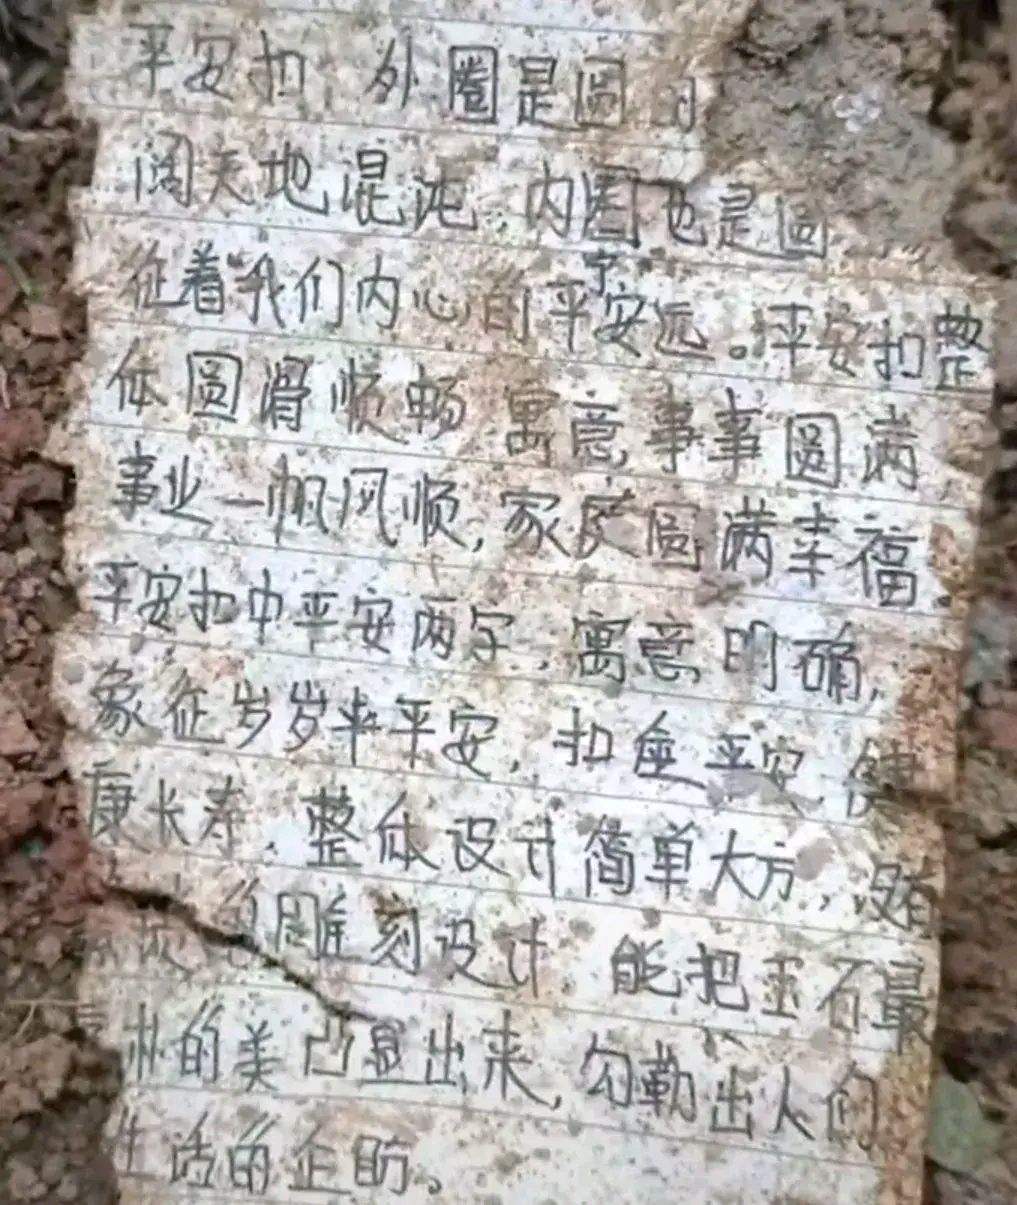 平安扣 外圈是圆的
阔天地混沌,内圈也是圆
征着我们内心的平安宁远。平安扣整
体圆滑顺畅 寓意事事圆满
事业一帆风顺,家庭圆满幸福.
平安扣中平安两字,寓意明确,
象征岁岁年平安,扣座平安,健
康长寿,整体设计简单大方,没有
雕刻设计 能把玉石最
的美凸显出来,勾勒出人们
生活的企盼。